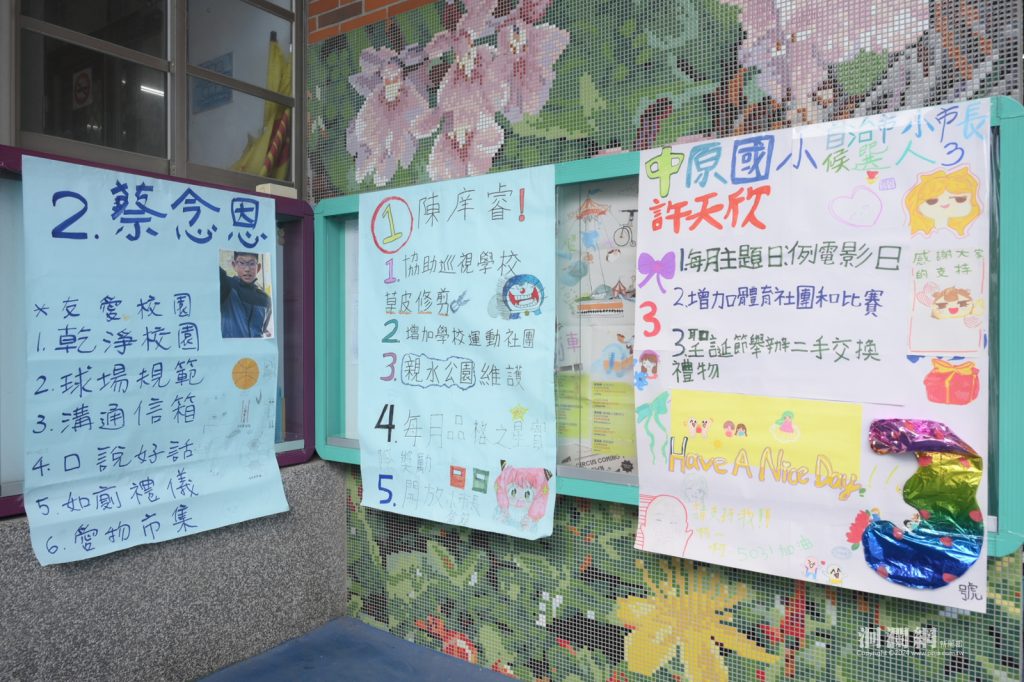 2. 蔡念恩
*友愛校園
1. 乾淨校園
2. 球場規範
3. 溝通信箱
4. 口說好話
5. 如廁禮儀
6. 愛物市集
1 陳庠睿!
1. 協助巡視學校
草皮修剪
2 增加學校運動社團
3 親水公園維護
4. 每月品格之星
獎勵
5. 開放
中原國小
自治市小市長
候選人3
許天欣
1.每月主題日:例電影日
2.增加體育社團和比賽
3.聖誕節舉辦二手交換
禮物
3
感謝大家
的支持
Have A Nice Day!!
加油
號
CIRCUS COMING